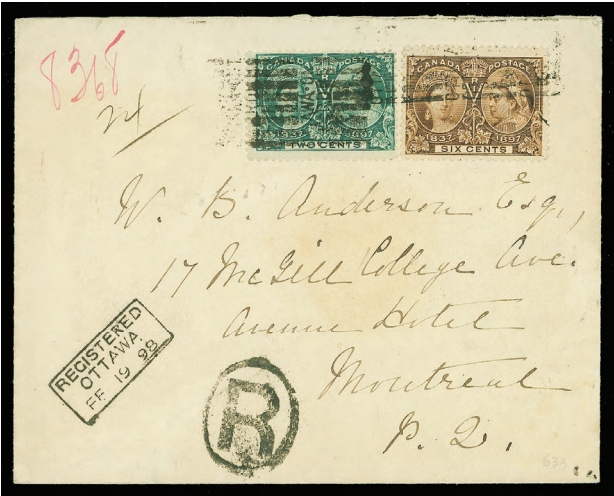 8368
CANADA POSTAGE
V R
1837 1897
TWO CENTS
CANADA POSTAGE
1837 1897
SIX CENTS
W. B. Anderson Esq.,
17 McGill College Ave.
Avenue Hotel
Montreal
P. Q.
REGISTERED
OTTAWA.
FE 19 98
R
633